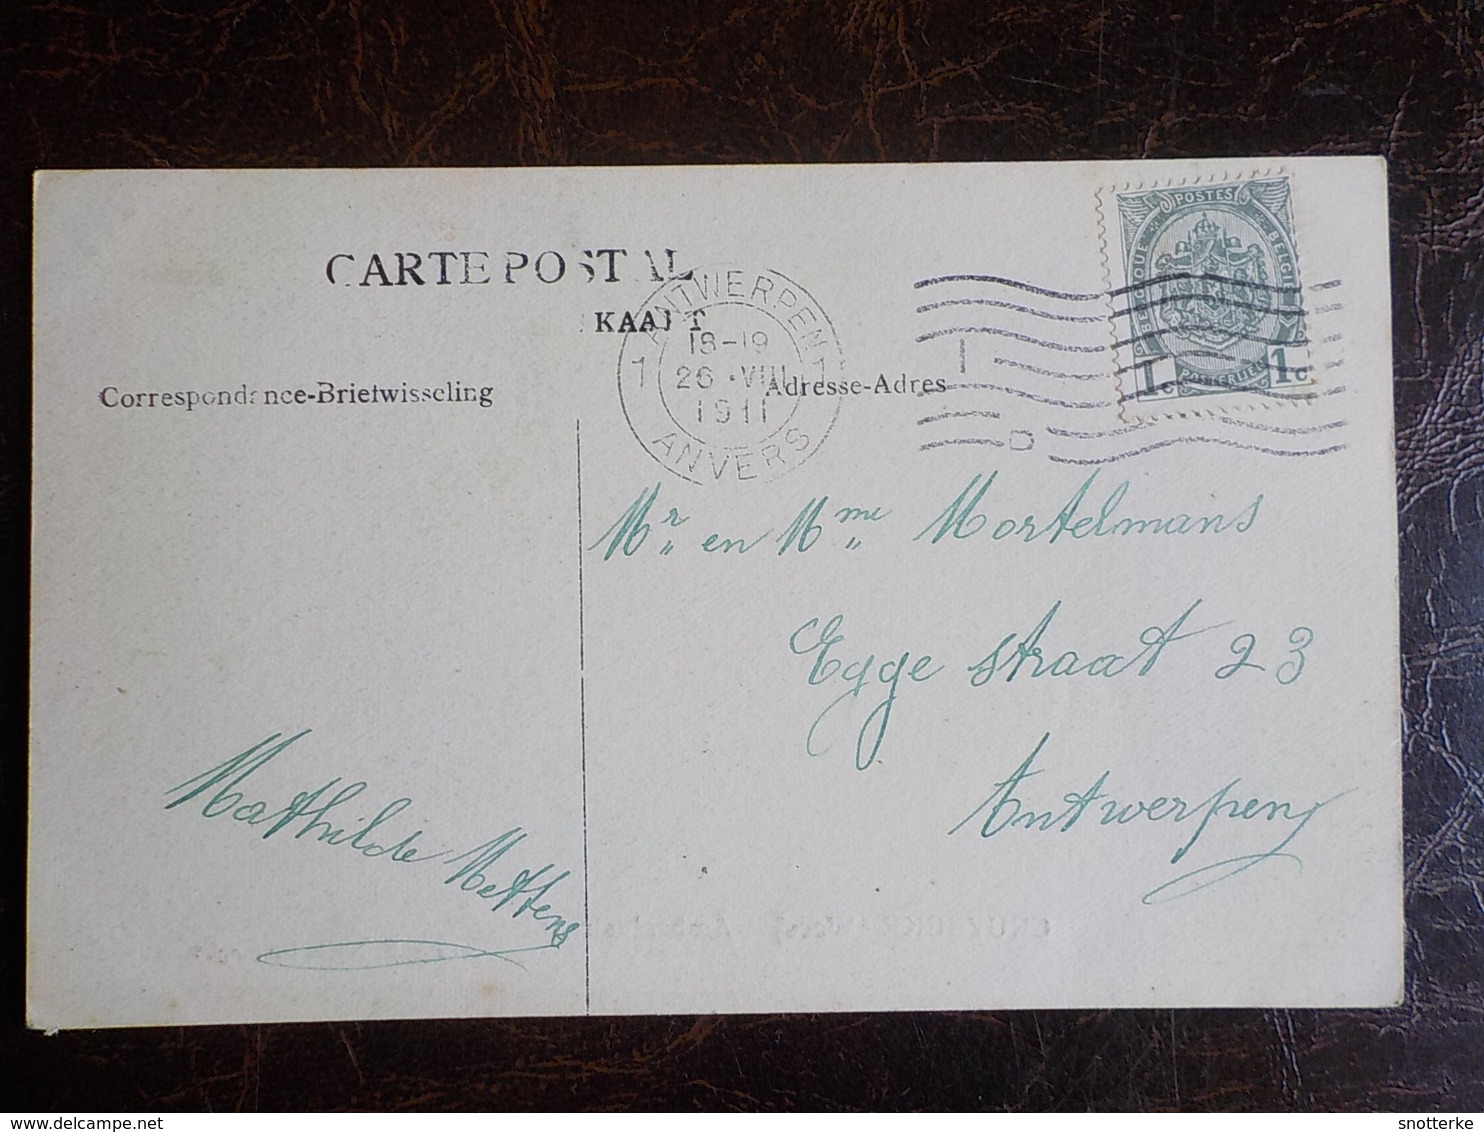 CARTE POSTAL
KAART
Correspondance-Brietwisseling
Adresse-Adres
ANTWERPEN
1 1
18-19
26 ·VIII
1911
ANVERS
POSTES
BELGIQUE
BELGIË
POSTERIJEN
1c 1c
Mr en Mme Mortelmans
Egge straat 23
Antwerpen
Mathilde Mettens
snotterke